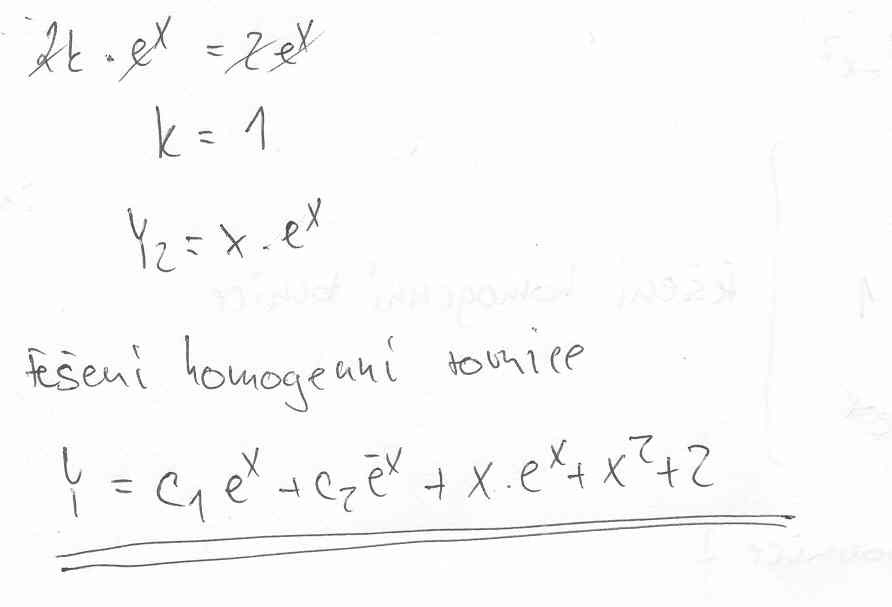 2k · eˣ = 2eˣ
k = 1
Y₂ = x · eˣ
řešení homogenní rovnice
Y = c₁ eˣ + c₂ e⁻ˣ + x · eˣ + x² + 2